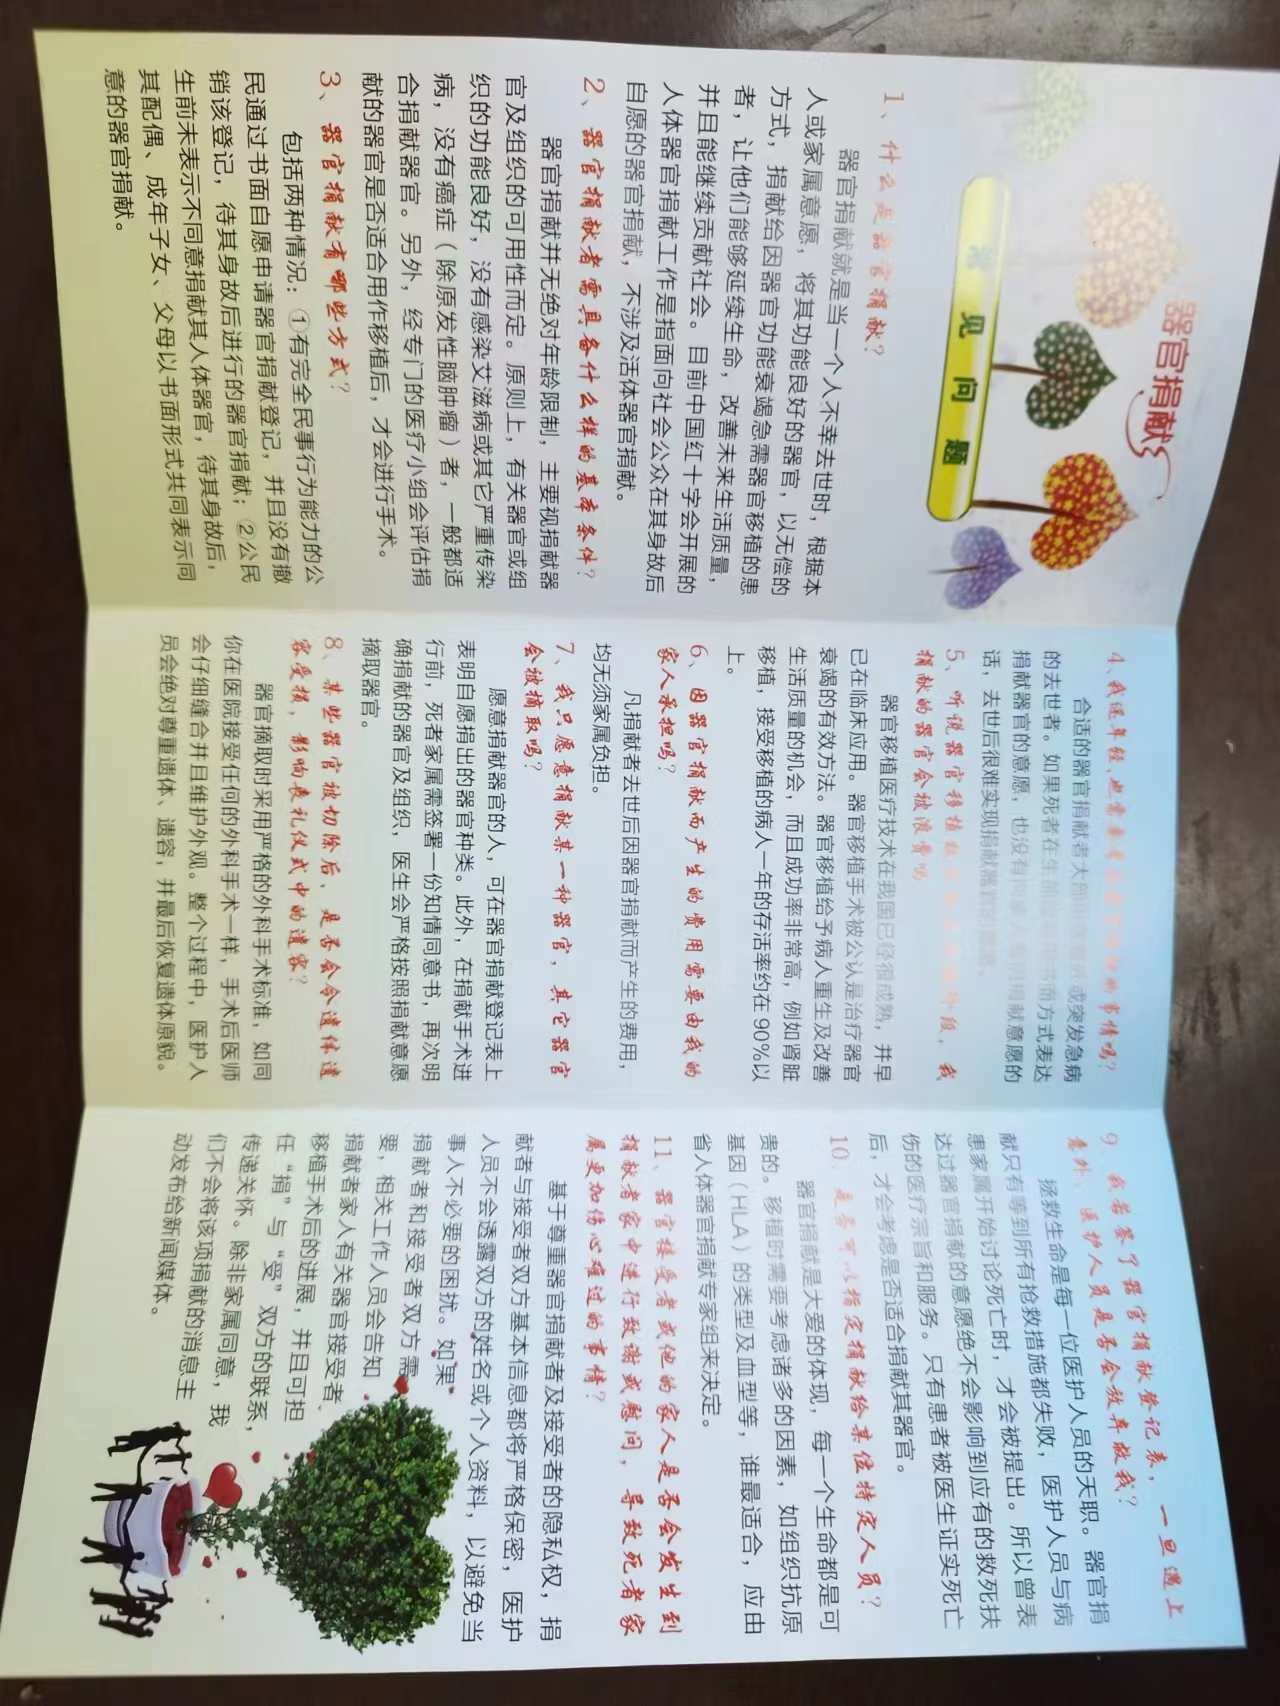 器官捐献
常见问题
1、什么是器官捐献?
器官捐献就是当一个人不幸去世时，根据本
人或家属意愿，将其功能良好的器官，以无偿的
方式，捐献给因器官功能衰竭急需器官移植的患
者，让他们能够延续生命，改善未来生活质量，
并且能继续贡献社会。目前中国红十字会开展的
人体器官捐献工作是指面向社会公众在其身故后
自愿的器官捐献，不涉及活体器官捐献。
2、器官捐献者需具备什么样的基本条件?
器官捐献并无绝对年龄限制，主要视捐献器
官及组织的可用性而定。原则上，有关器官或组
织的功能良好，没有感染艾滋病或其它严重传染
病，没有癌症（除原发性脑肿瘤）者，一般都适
合捐献器官。另外，经专门的医疗小组会评估捐
献的器官是否适合用作移植后，才会进行手术。
3、器官捐献有哪些方式?
包括两种情况：①有完全民事行为能力的公
民通过书面自愿申请器官捐献登记，并且没有撤
销该登记，待其身故后进行的器官捐献；②公民
生前未表示不同意捐献其人体器官，待其身故后，
其配偶、成年子女、父母以书面形式共同表示同
意的器官捐献。
4、我还年轻，也需要考虑的事情吗?
合适的器官捐献者大部或突发急病
的去世者。如果死者在生前书面方式表达
捐献器官的意愿，也没有向家人捐献意愿的
话，去世后很难实现捐献器官的
5、听说器官移植阶段，我
捐献的器官会被浪费吗
器官移植医疗技术在我国已经很成熟，并早
已在临床应用。器官移植手术被公认是治疗器官
衰竭的有效方法。器官移植给予病人重生及改善
生活质量的机会，而且成功率非常高，例如肾脏
移植，接受移植的病人一年的存活率约在90%以
上。
6、因器官捐献而产生的费用需要由我的
家人承担吗?
凡捐献者去世后因器官捐献而产生的费用，
均无须家属负担。
7、我只愿意捐献某一种器官，其它器官
会被摘取吗?
愿意捐献器官的人，可在器官捐献登记表上
表明自愿捐出的器官种类。此外，在捐献手术进
行前，死者家属需签署一份知情同意书，再次明
确捐献的器官及组织，医生会严格按照捐献意愿
摘取器官。
8、某些器官被切除后，是否会令遗体遗
容受损，影响丧礼仪式中的遗容?
器官摘取时采用严格的外科手术标准，如同
你在医院接受任何的外科手术一样，手术后医师
会仔细缝合并且维护外观。整个过程中，医护人
员会绝对尊重遗体、遗容，并最后恢复遗体原貌。
9、我若签了器官捐献登记表，一旦遇上
意外，医护人员是否会放弃救我?
拯救生命是每一位医护人员的天职。器官捐
献只有等到所有抢救措施都失败，医护人员与病
患家属开始讨论死亡时，才会被提出。所以曾表
达过器官捐献的意愿绝不会影响到应有的救死扶
伤的医疗宗旨和服务。只有患者被医生证实死亡
后，才会考虑是否适合捐献其器官。
10、是否可以指定捐献给某位特定人员?
器官捐献是大爱的体现，每一个生命都是可
贵的。移植时需要考虑诸多的因素，如组织抗原
基因（HLA）的类型及血型等，谁最适合，应由
省人体器官捐献专家组来决定。
11、器官接受者或他的家人是否会发生到
捐献者家中进行致谢或慰问，导致死者家
属更加伤心难过的事情?
基于尊重器官捐献者及接受者的隐私权，捐
献者与接受者双方基本信息都将严格保密，医护
人员不会透露双方的姓名或个人资料，以避免当
事人不必要的困扰。如果
捐献者和接受者双方需
要，相关工作人员会告知
捐献者家人有关器官接受者
移植手术后的进展，并且可担
任“捐”与“受”双方的联系，
传递关怀。除非家属同意，我
们不会将该项捐献的消息主
动发布给新闻媒体。